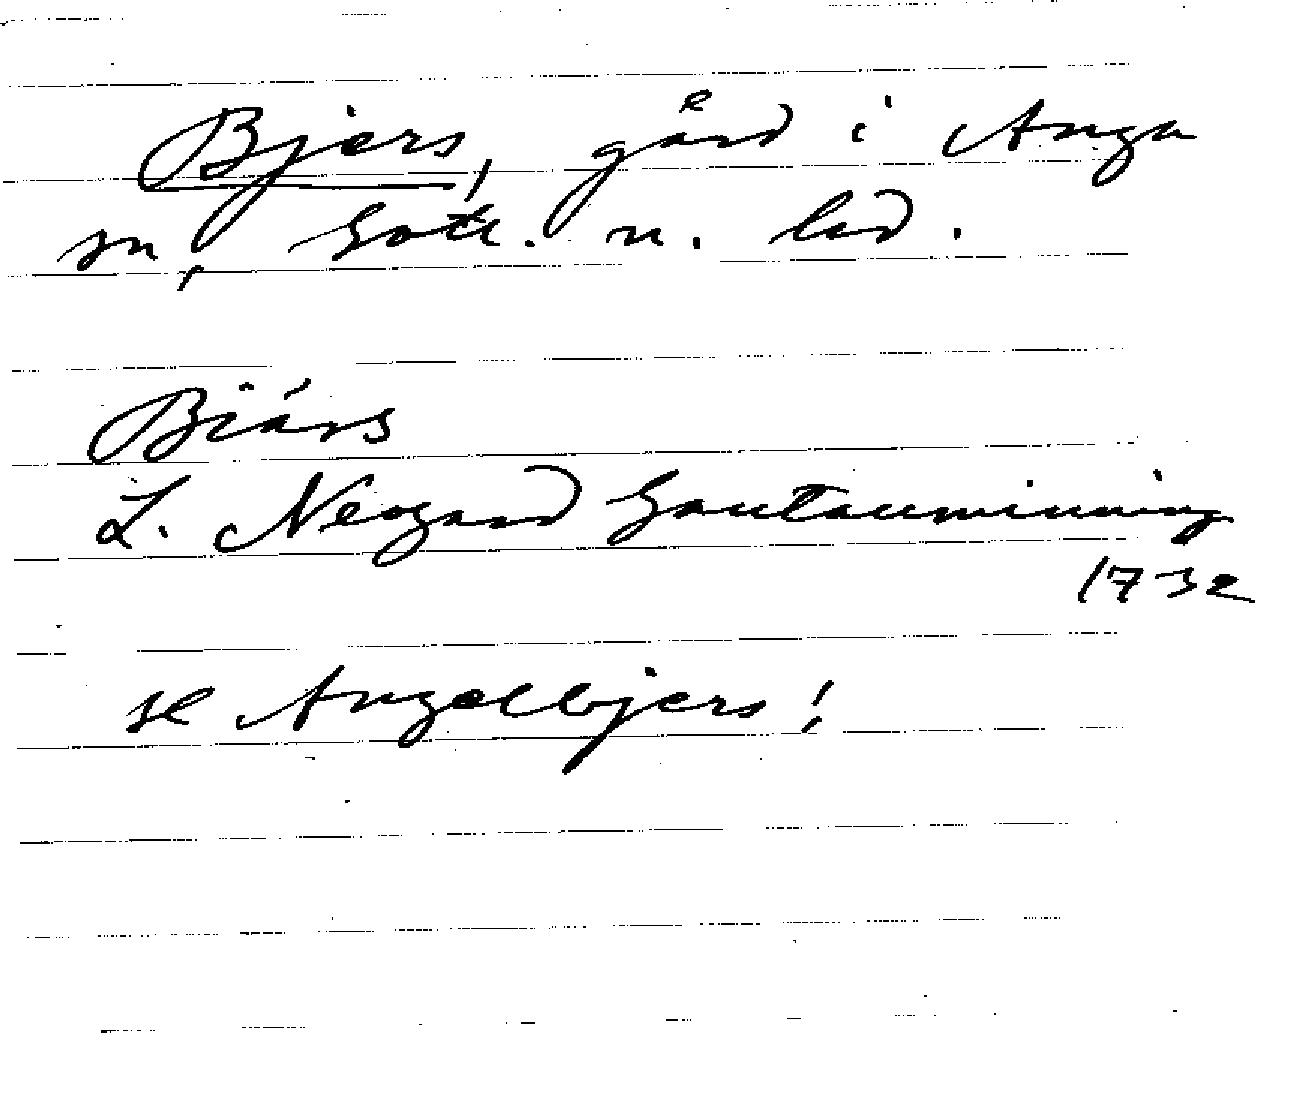 Bjers, gård i Anga
sn, Gotl. n. hd.
Biárs
L. Neogard Gautauminning
1732
se Angelbjers!